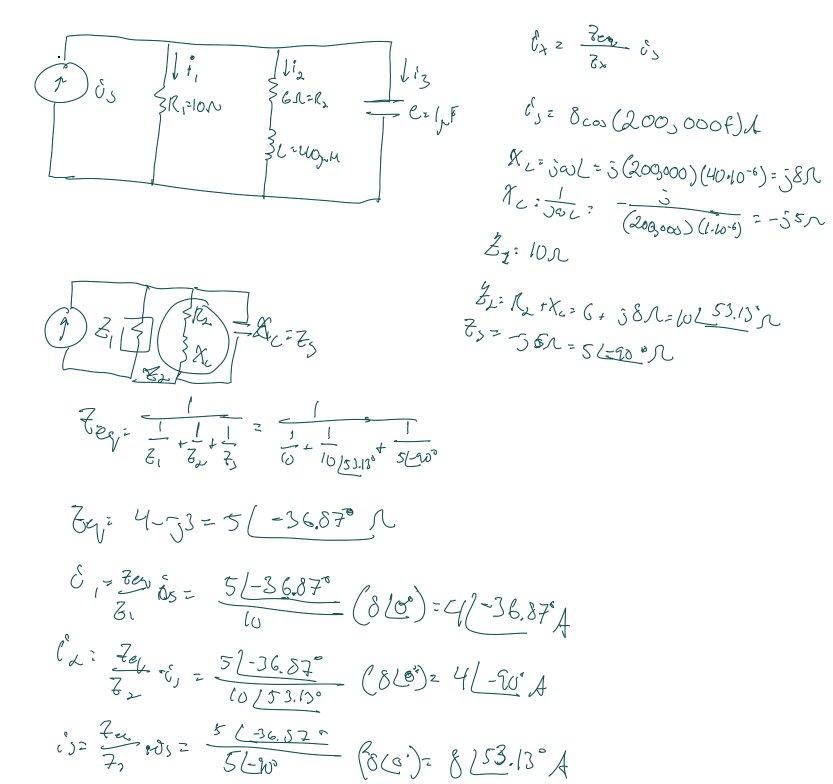 i_x = Z_eq / Z_x i_s
↓i_1 ↓i_2 ↓i_3
i_s R_1=10Ω 6Ω=R_2 C=1μF
L=40μH
i_s = 8cos(200,000t)A
X_L = jωL = j(200,000)(40·10^-6) = j8Ω
X_C = 1/jωC = -j/(200,000)(1·10^-6) = -j5Ω
Z_1 = 10Ω
Z_2 = R_2 + X_L = 6 + j8Ω = 10∠53.13°Ω
Z_3 = -j5Ω = 5∠-90°Ω
Z_1 R_2 X_C = Z_3
X_L
Z_2
Z_eq = 1/(1/Z_1 + 1/Z_2 + 1/Z_3) = 1/(1/10 + 1/10∠53.13° + 1/5∠-90°)
Z_eq = 4-j3 = 5∠-36.87° Ω
i_1 = Z_eq/Z_1 i_s = 5∠-36.87°/10 (8∠0°) = 4∠-36.87° A
i_2 = Z_eq/Z_2 · i_s = 5∠-36.87°/10∠53.13° (8∠0°) = 4∠-90° A
i_3 = Z_eq/Z_3 · i_s = 5∠-36.87°/5∠-90° (8∠0°) = 8∠53.13° A